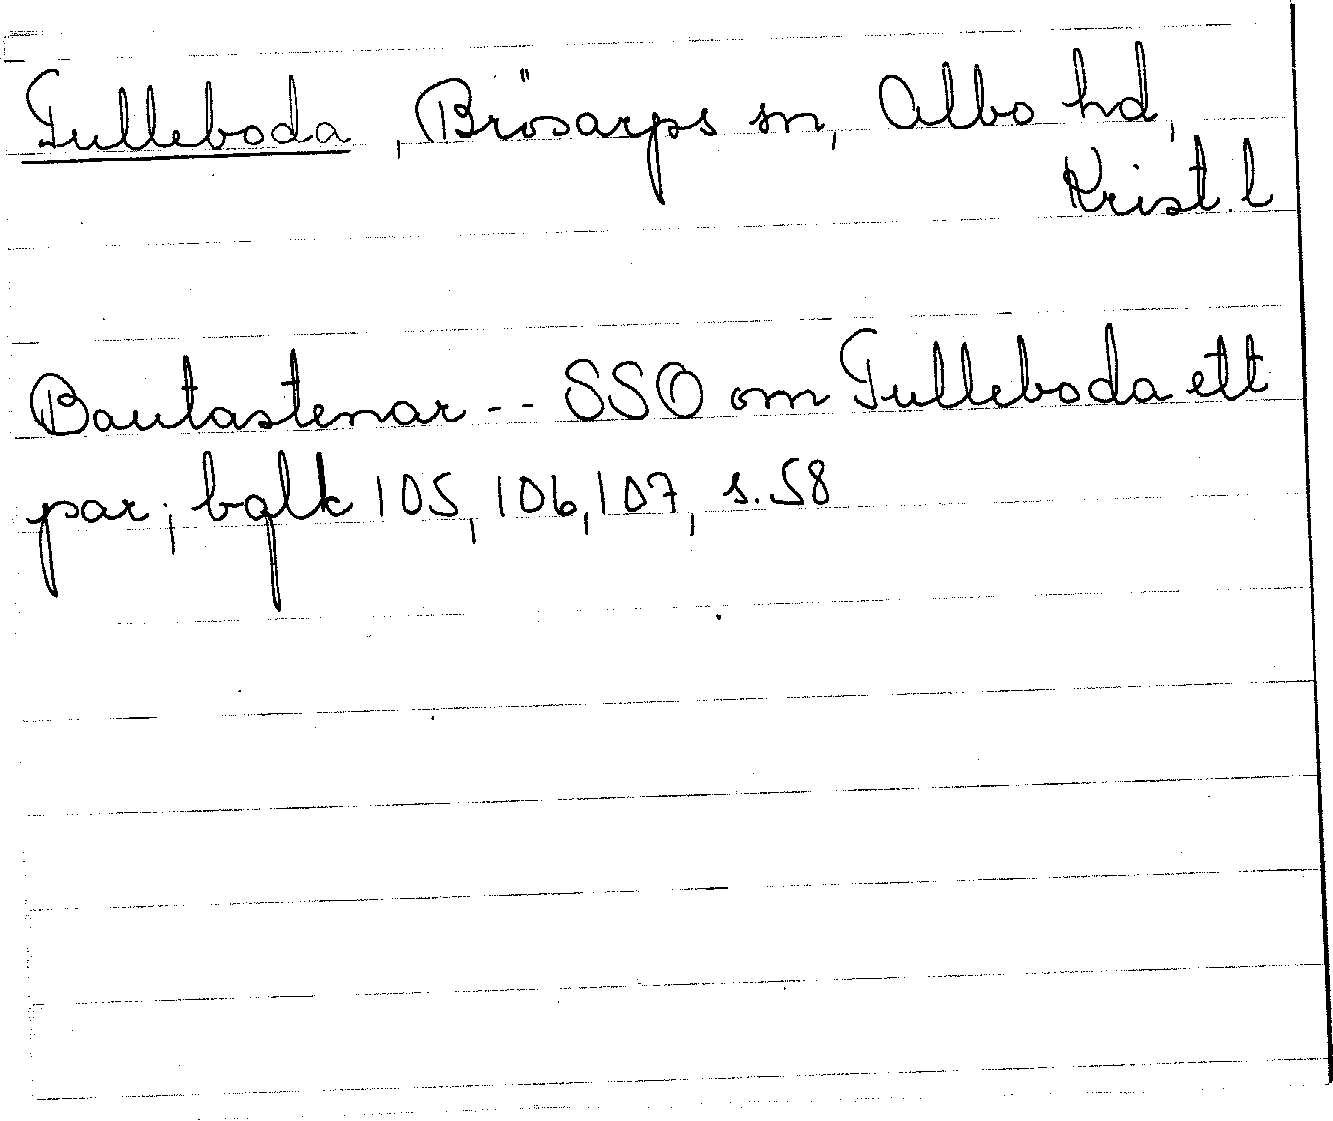 Tulleboda, Brösarps sn, Albo hd,
Krist. l
Bautastenar -- SSO om Tulleboda ett
par; bglk 105, 106, 107, s. 58